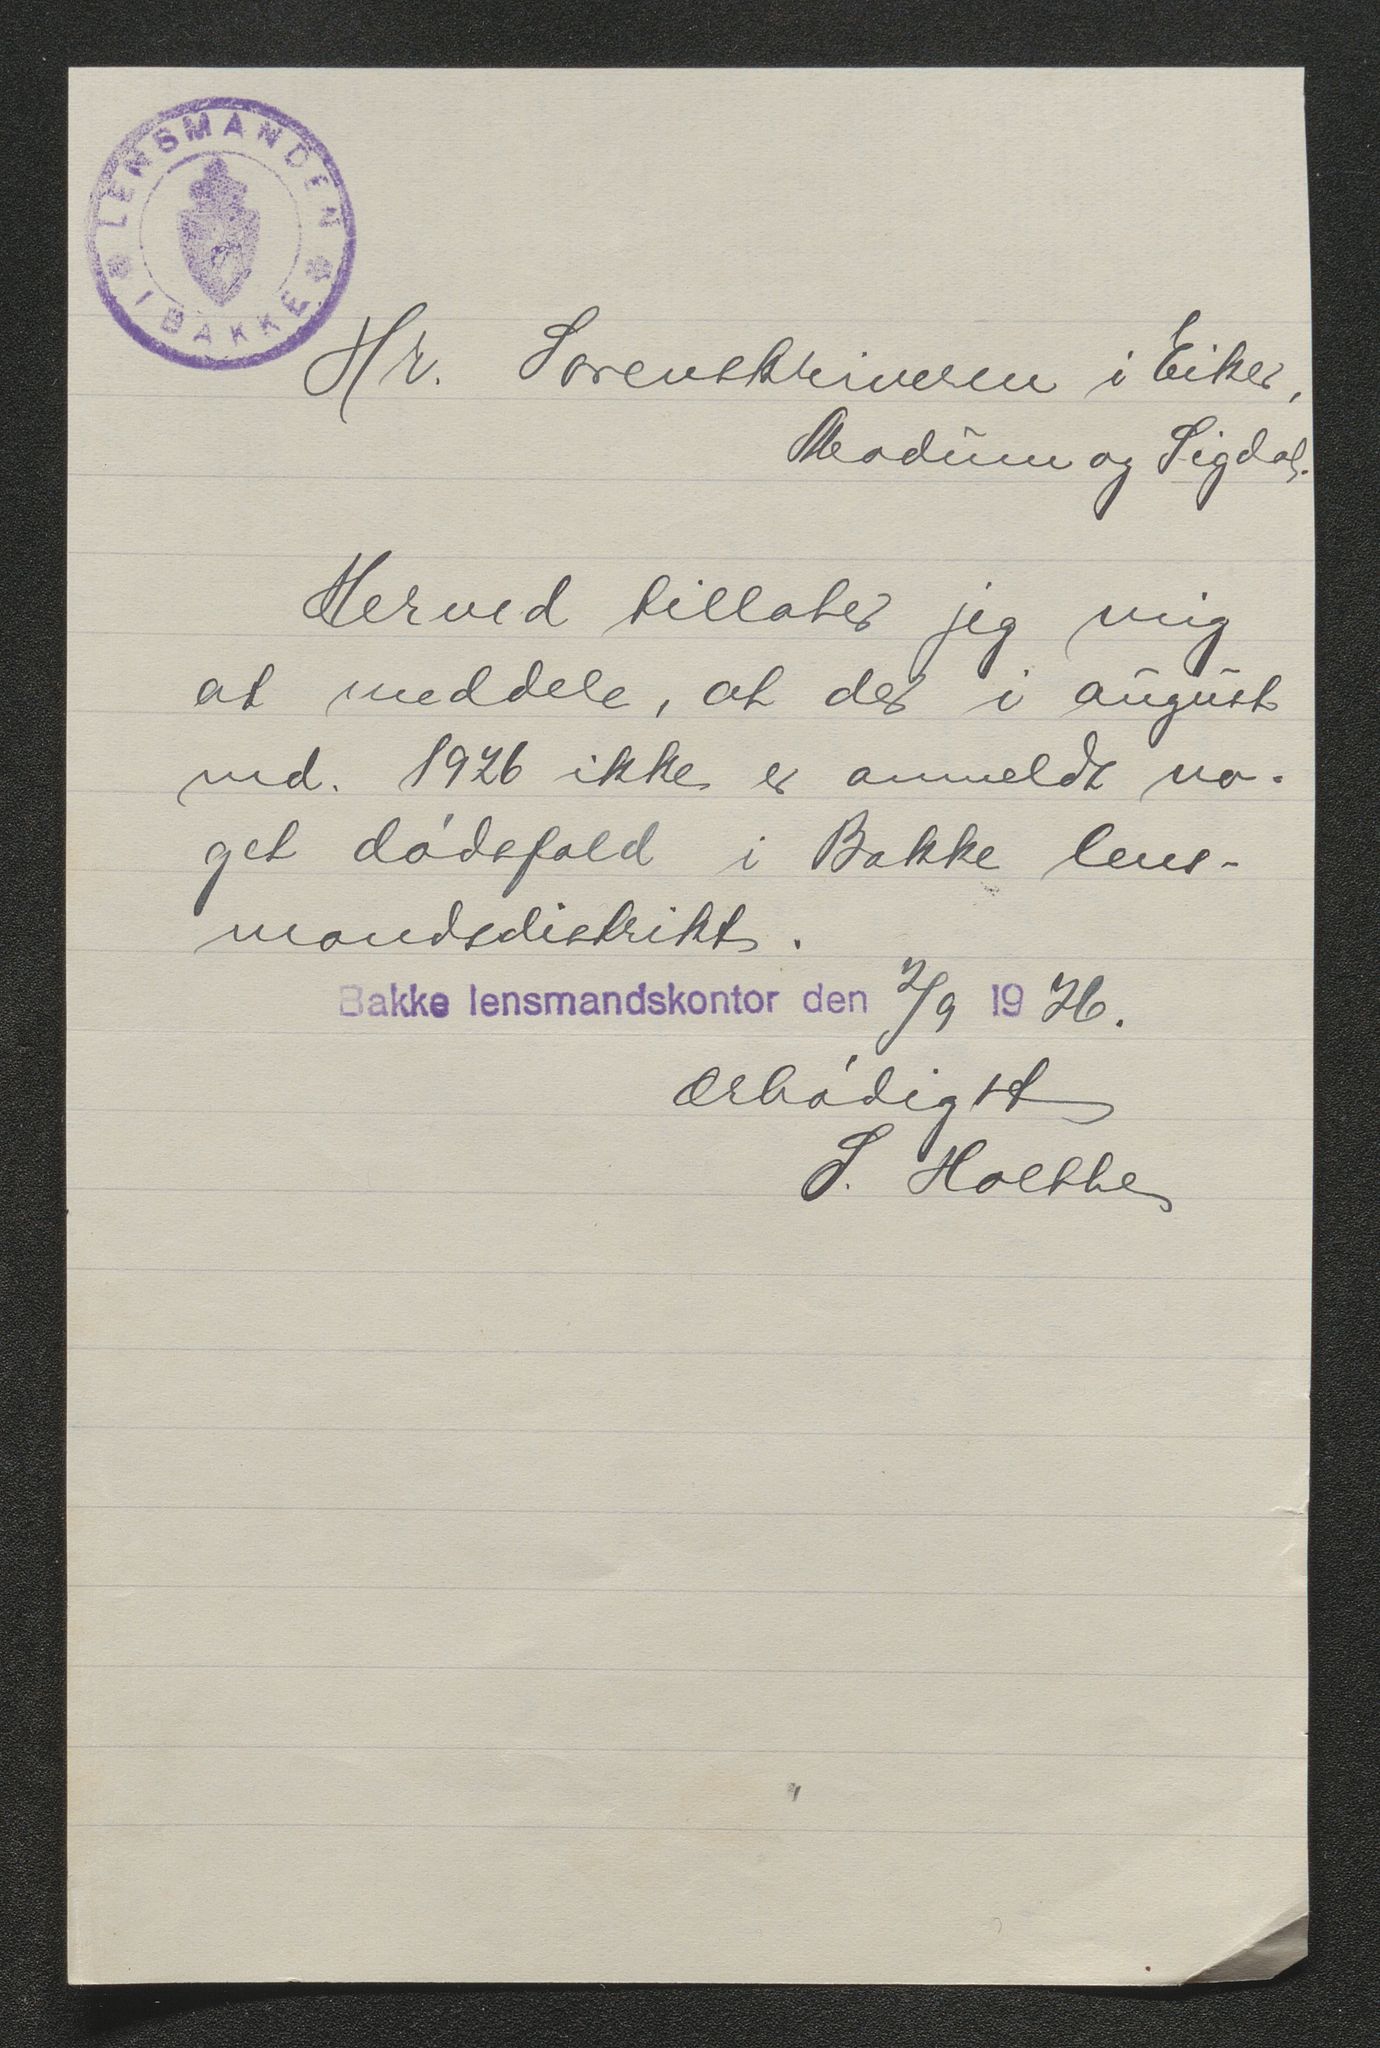 LENSMANDEN
I BAKKE
Hr. Sorenskriveren i Eiker,
Modum og Sigdal.
Herved tillater jeg mig
at meddele, at der i august
md. 1926 ikke er anmeldt no-
get dødsfald i Bakke lens-
mandsdistrikt.
Bakke lensmandskontor den 2/9 1926.
Ærbødigst
S. Holthe